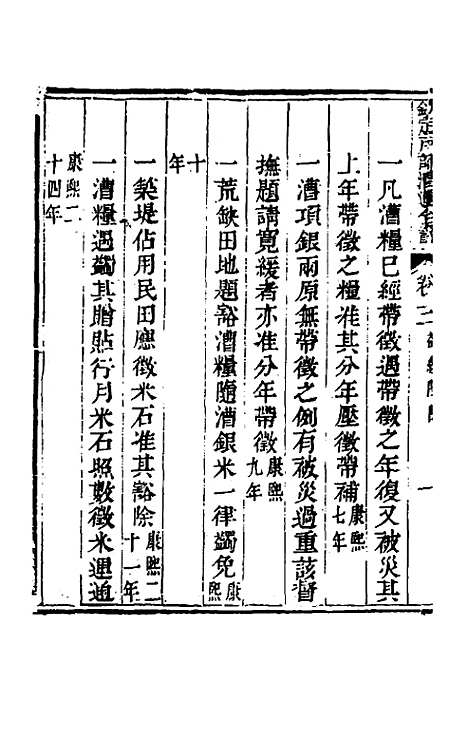 欽定戶部漕運全書 卷二 蠲緩陞除 一
一凡漕糧已經帶徵遇帶徵之年復又被災其
上年帶徵之糧准其分年壓徵帶補康熙七年
一漕項銀兩原無帶徵之例有被災過重該督
撫題請寬緩者亦准分年帶徵康熙九年
一荒缺田地題豁漕糧隨漕銀米一律蠲免康熙
十年
一築堤佔用民田應徵米石准其豁除康熙二十一年
一漕糧遇蠲其贈貼行月米石照數徵米運通
康熙二十四年